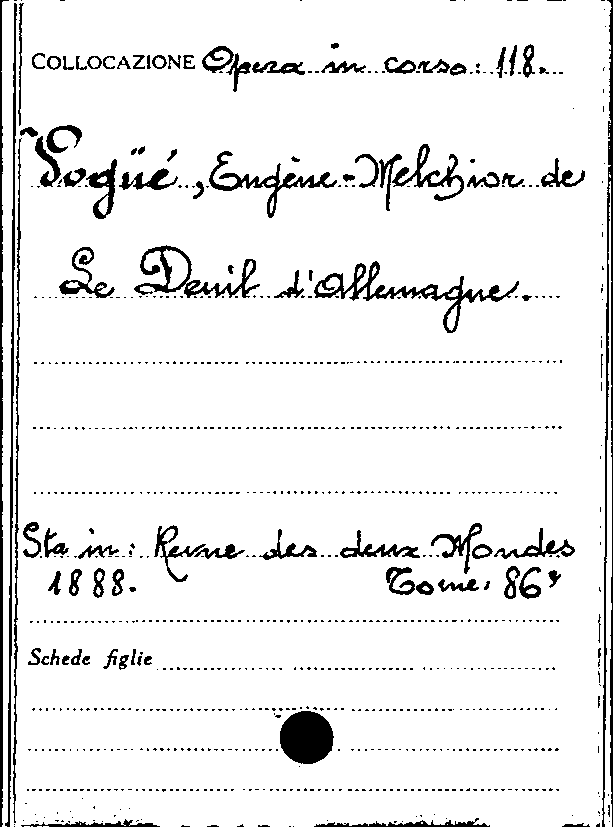 COLLOCAZIONE Opera in corso: 118.
Vogüé, Eugène-Melchior de
Le Deuil d'Allemagne.
Sta in: Revue des deux Mondes
1888. Tome: 86º
Schede figlie